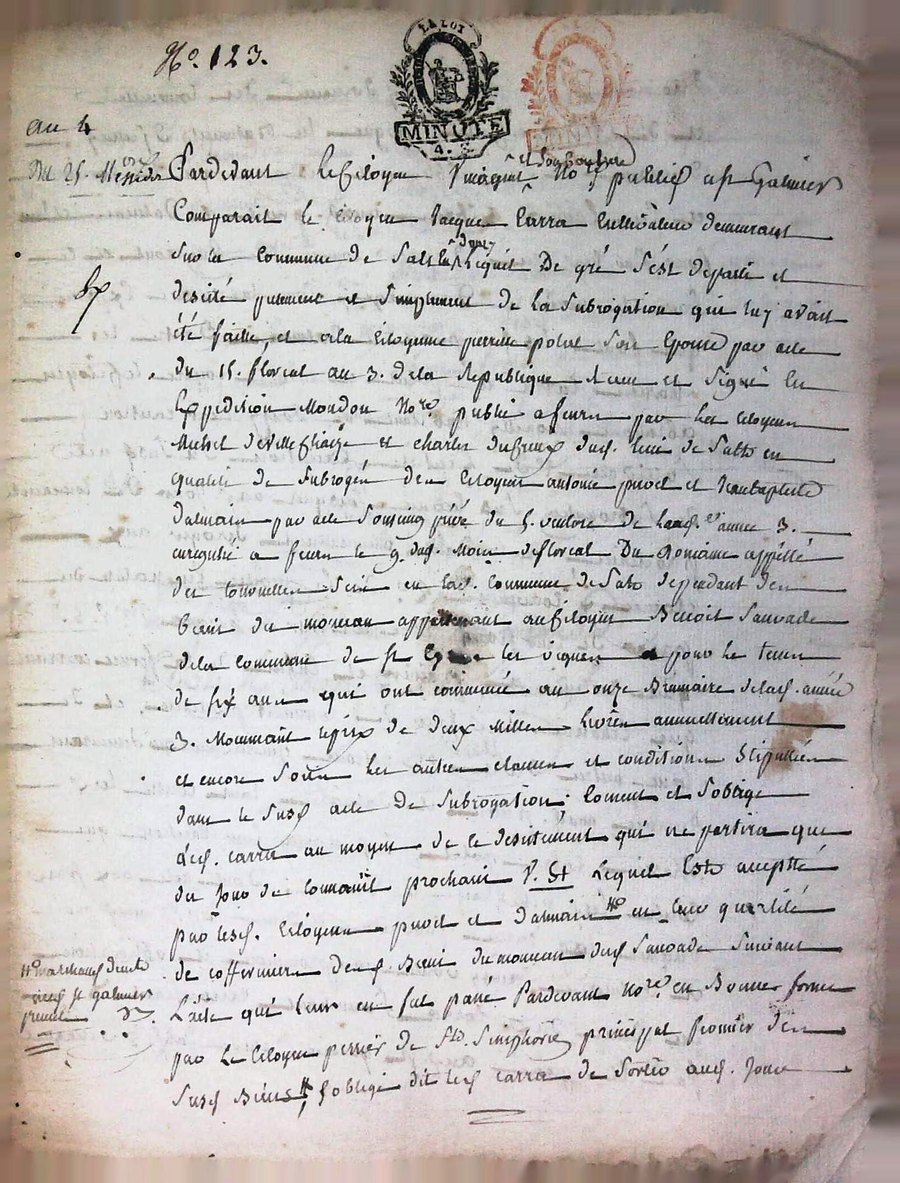 No. 123.
LA LOI
MINUTE
au 4
Du 25. Messidor Pardevant Le Citoyen et Soubsigné Nore. public a St Galmier
Comparait le Citoyen Jacque Carra Cultivateur demeurant
Sur la Commune de Salt Lequel De gré S'est departi et
desisté purement et Simplement de la Subrogation qui luy avait
été faitte, et a la Citoyenne perrine Son Epouse par acte
du 15. floreal an 3. de la Republique Recue et Signé En
Expedition Mondon Nore. public a feurs par les Citoyens
Michel et Charles dud. lieu de Salt en
qualité de Subrogés des Citoyens antoine et Jean baptiste
Dalmain par acte Sousseing privé du 5. ventose de lad. année 3.
enregistré a feurs le 9. dud. Mois de floreal Du Domaine appellé
des Situé en lad. Commune de Salt dependant des
biens du monceau appartenant au Citoyen Benoit Sauvade
de la Commune de St les vignes pour le tems
de six ans qui ont commencé au onze Brumaire de lad. année
3. Moyennant le prix de deux Milles Livres annuellement
et encore Sous les autres clauses et conditions Stipullées
dans le Susd. acte De Subrogation. Consent et S'oblige
led. carra au moyen de ce desistement qui ne partira que
du Jour de toussaint prochain V. St Lequel Est acceptté
par lesd. Citoyens et Dalmain # en leur qualité
de coffermiers desd. Biens du monceau dud. Sauvade Suivant
L'acte qui leur en fut passé Pardevant Nore. en Bonne forme
par Le Citoyen perrier de St. Simphorien principal fermier des
Susd. Biens #, S'oblige dit led. carra de Sortir aud. Jour
# marchands demt.
St galmier